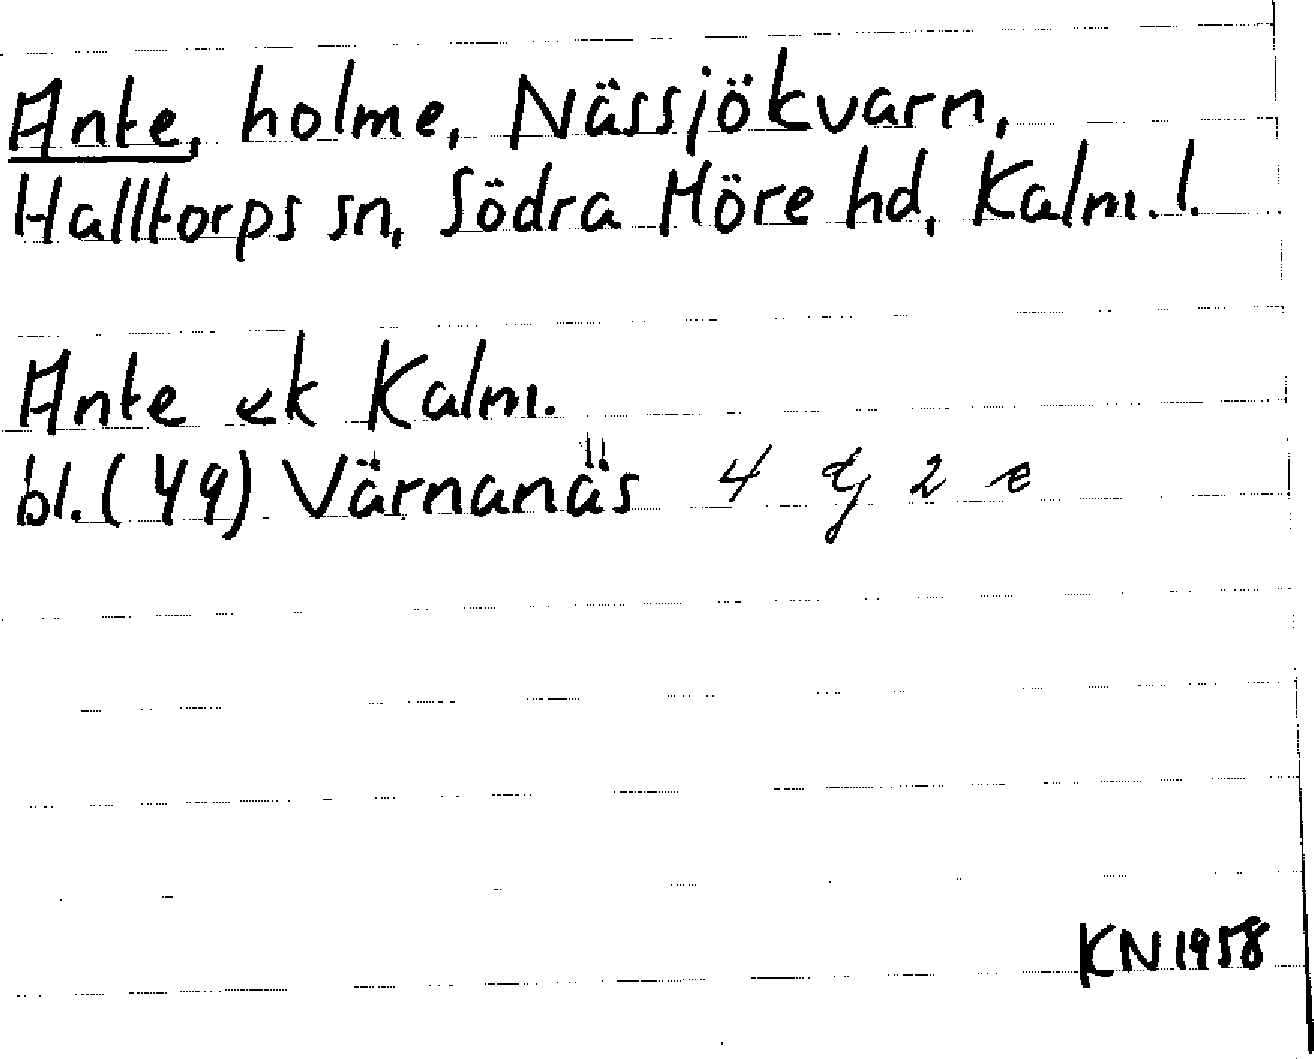 Ante, holme, Nässjökvarn,
Halltorps sn, Södra Möre hd, Kalm. l.
Ante ek Kalm.
bl. (49) Värnanäs 4 g 2 e
KN 1958